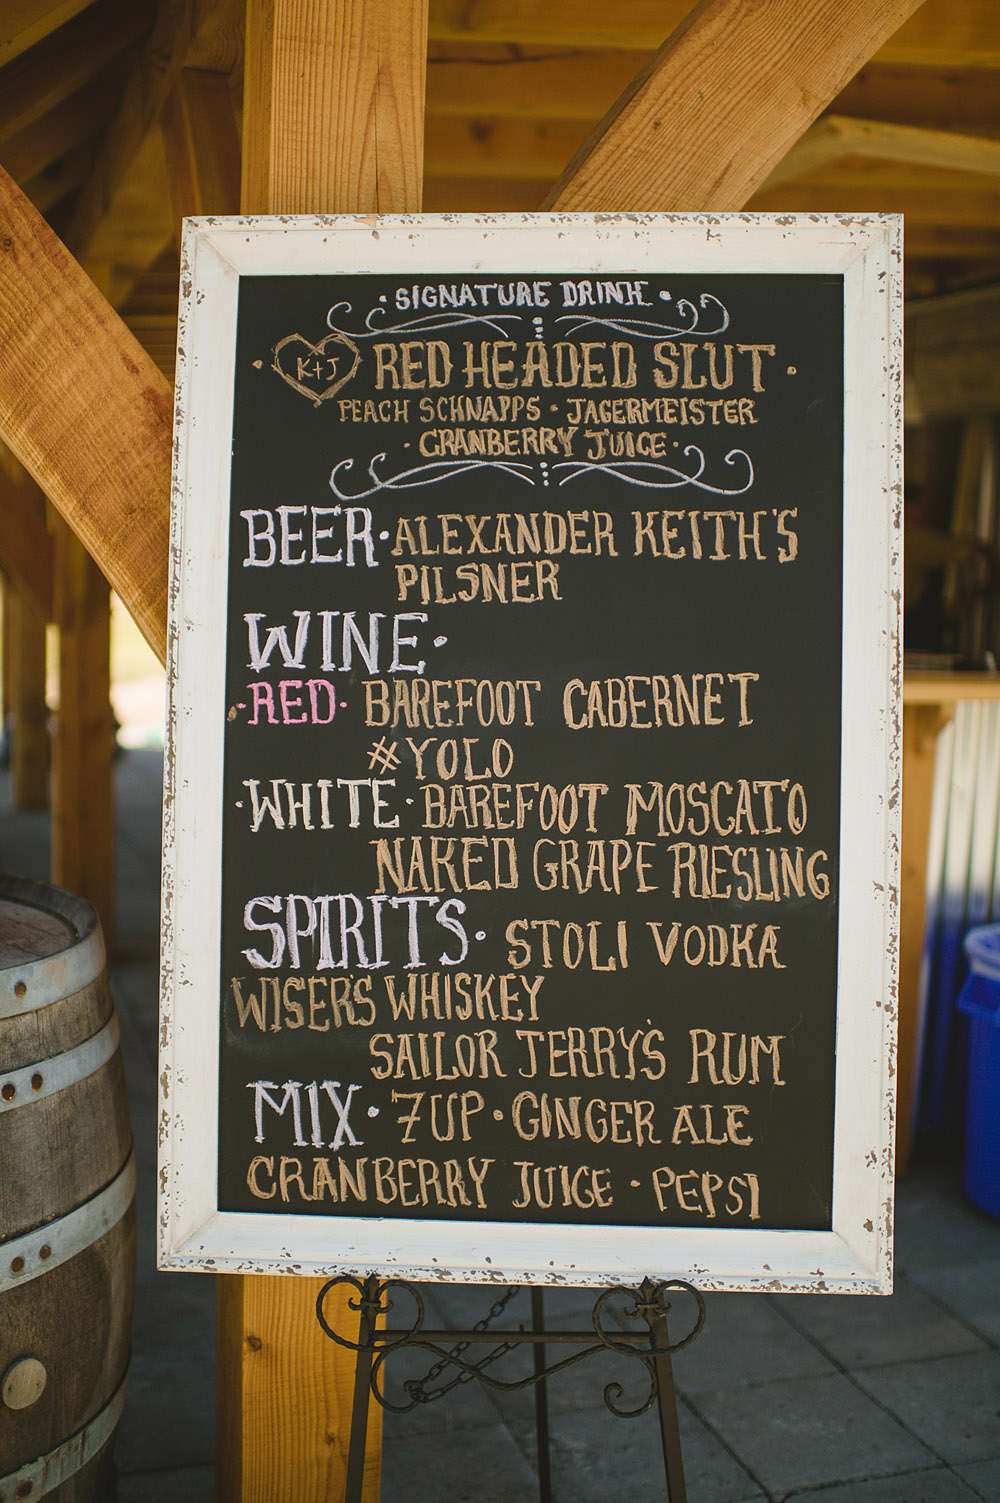 · SIGNATURE DRINK ·
K+J · RED HEADED SLUT ·
PEACH SCHNAPPS · JAGERMEISTER
· CRANBERRY JUICE ·
BEER · ALEXANDER KEITH'S
PILSNER
WINE ·
· RED · BAREFOOT CABERNET
#YOLO
· WHITE · BAREFOOT MOSCATO
NAKED GRAPE RIESLING
SPIRITS · STOLI VODKA
WISER'S WHISKEY
SAILOR JERRY'S RUM
MIX · 7UP · GINGER ALE
CRANBERRY JUICE · PEPSI